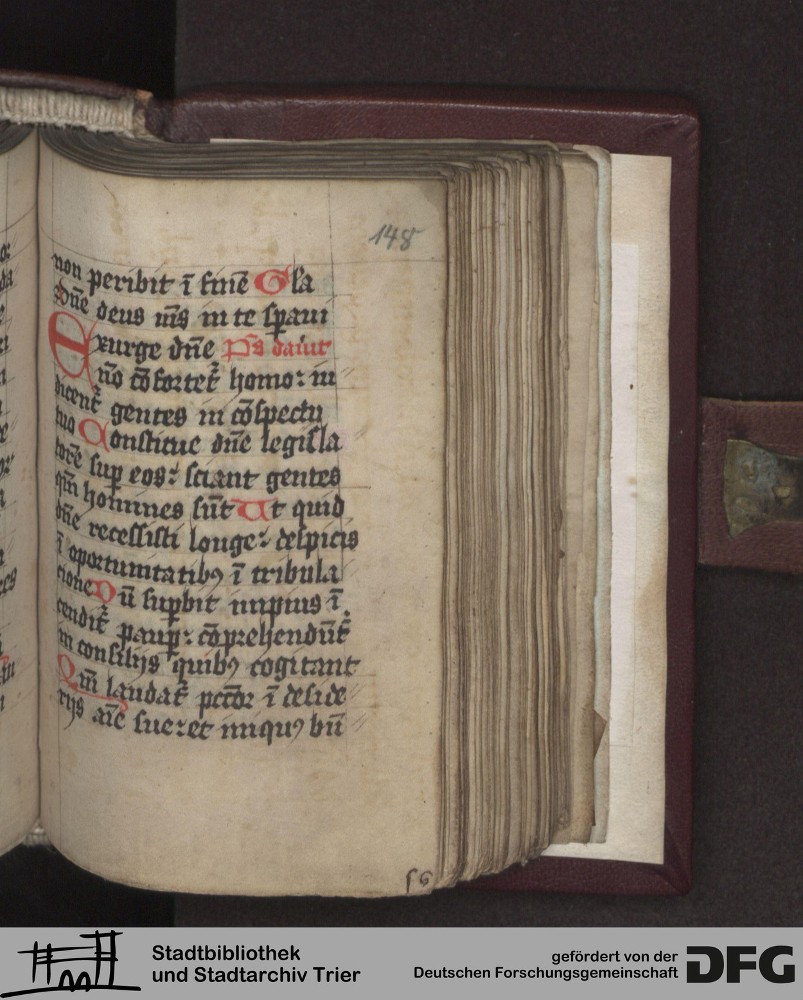 148
non peribit ī finē Gla
Dñe deus m̄s in te spaui
Exurge dñe Ps dauit
nō cōfortet᷑ homo: iu
dicent᷑ gentes in cōspectu
tuo Constitue dñe legisla
torē sup eos: sciant gentes
qm̄ homines sūt Ut quid
dñe recessisti longe: despicis
ī oportunitatibꝯ ī tribula
cione Dū supbit impius ī
cendit᷑ paup: cōprehendūt᷑
in consilijs quibꝯ cogitant
Qm̄ laudat᷑ pctōr ī deside
rijs aīe sue: et iniquꝯ bn̄
f 6
Stadtbibliothek
und Stadtarchiv Trier
gefördert von der
Deutschen Forschungsgemeinschaft
DFG